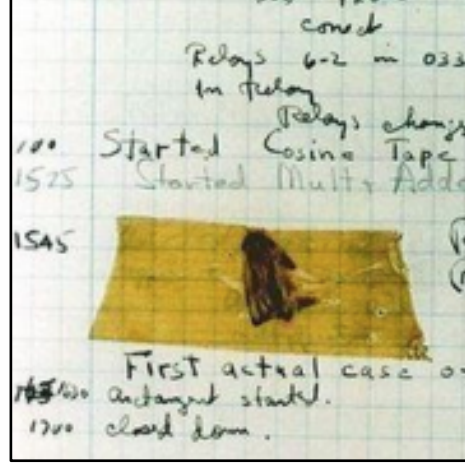 conect
Relays 6-2 in 033
in relay
Relays chang
Started Cosine Tape
1525 Started Mult+ Adde
1545
First actual case o
1630 arctangent started.
1700 closed down.